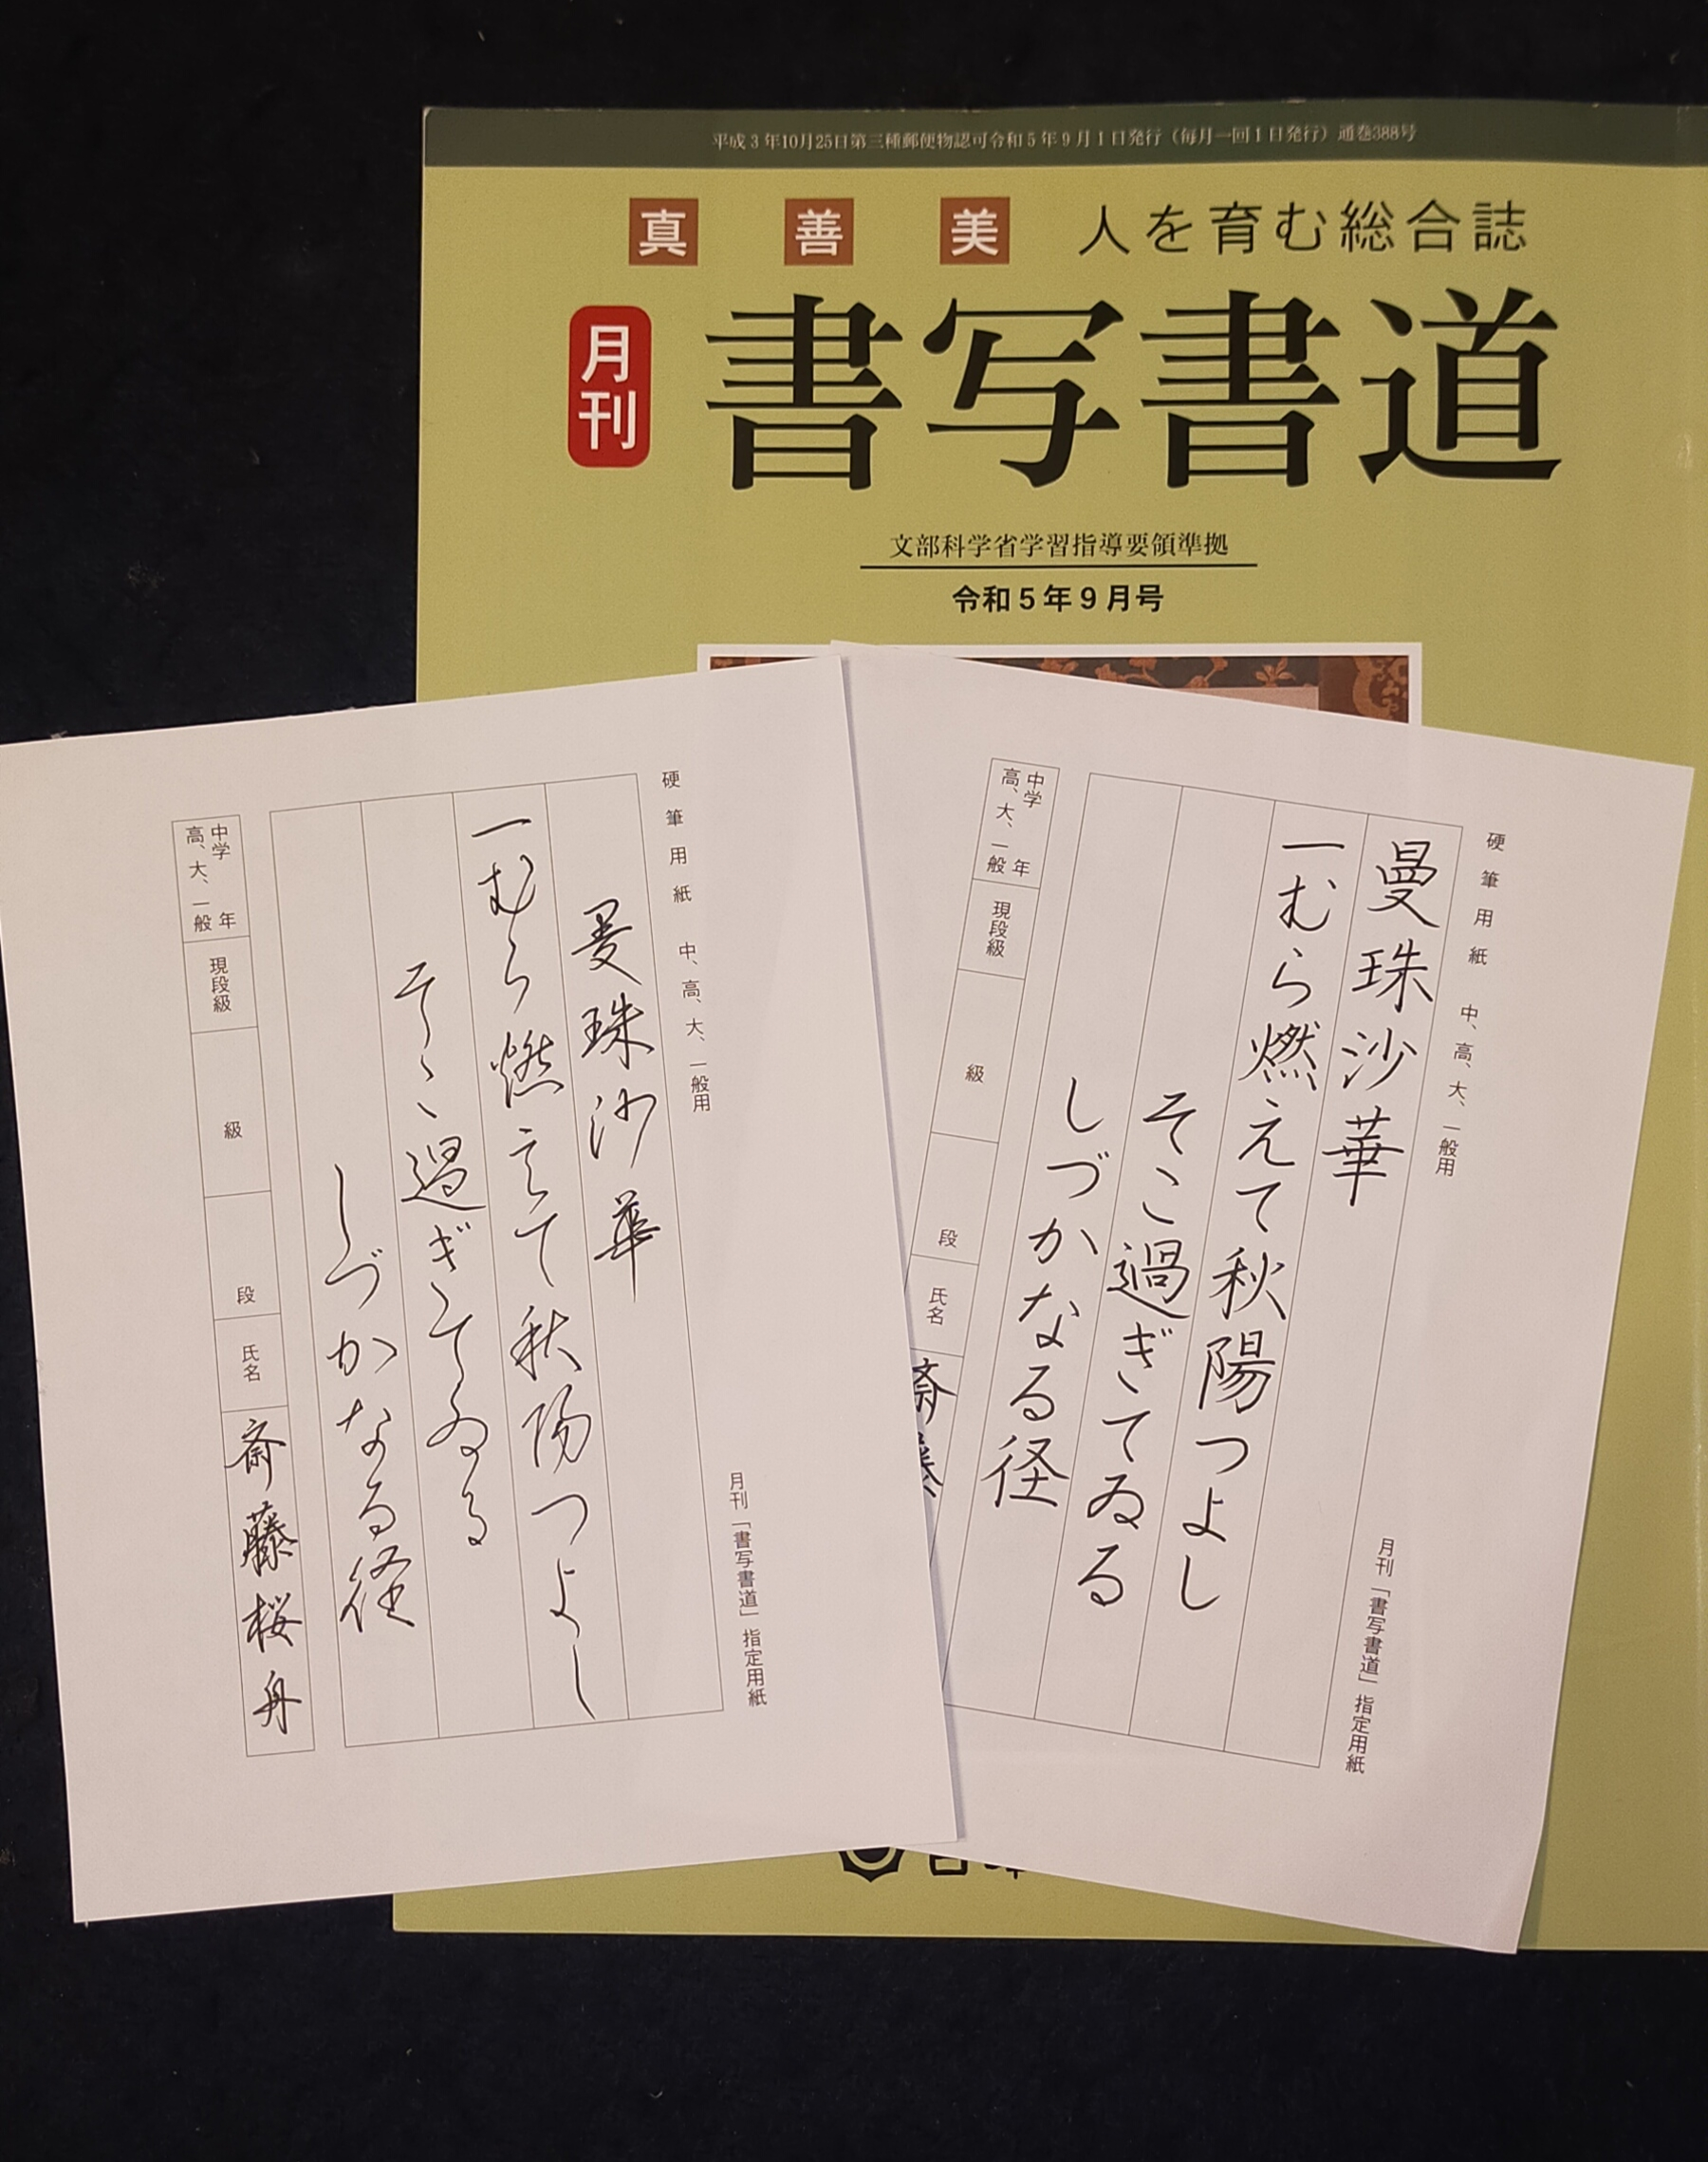 平成3年10月25日第三種郵便物認可令和5年9月1日発行（毎月一回1日発行）通巻388号
真 善 美 人を育む総合誌
月刊
書写書道
文部科学省学習指導要領準拠
令和5年9月号
硬筆用紙 中、高、大、一般用
月刊「書写書道」指定用紙
曼珠沙華
一むら燃えて秋陽つよし
そこ過ぎてゐる
しづかなる径
中学 年
高、大、一般
現段級
級
段
氏名
斎藤
硬筆用紙 中、高、大、一般用
月刊「書写書道」指定用紙
曼珠沙華
一むら燃えて秋陽つよし
そこ過ぎてゐる
しづかなる径
中学 年
高、大、一般
現段級
級
段
氏名
斎藤桜舟